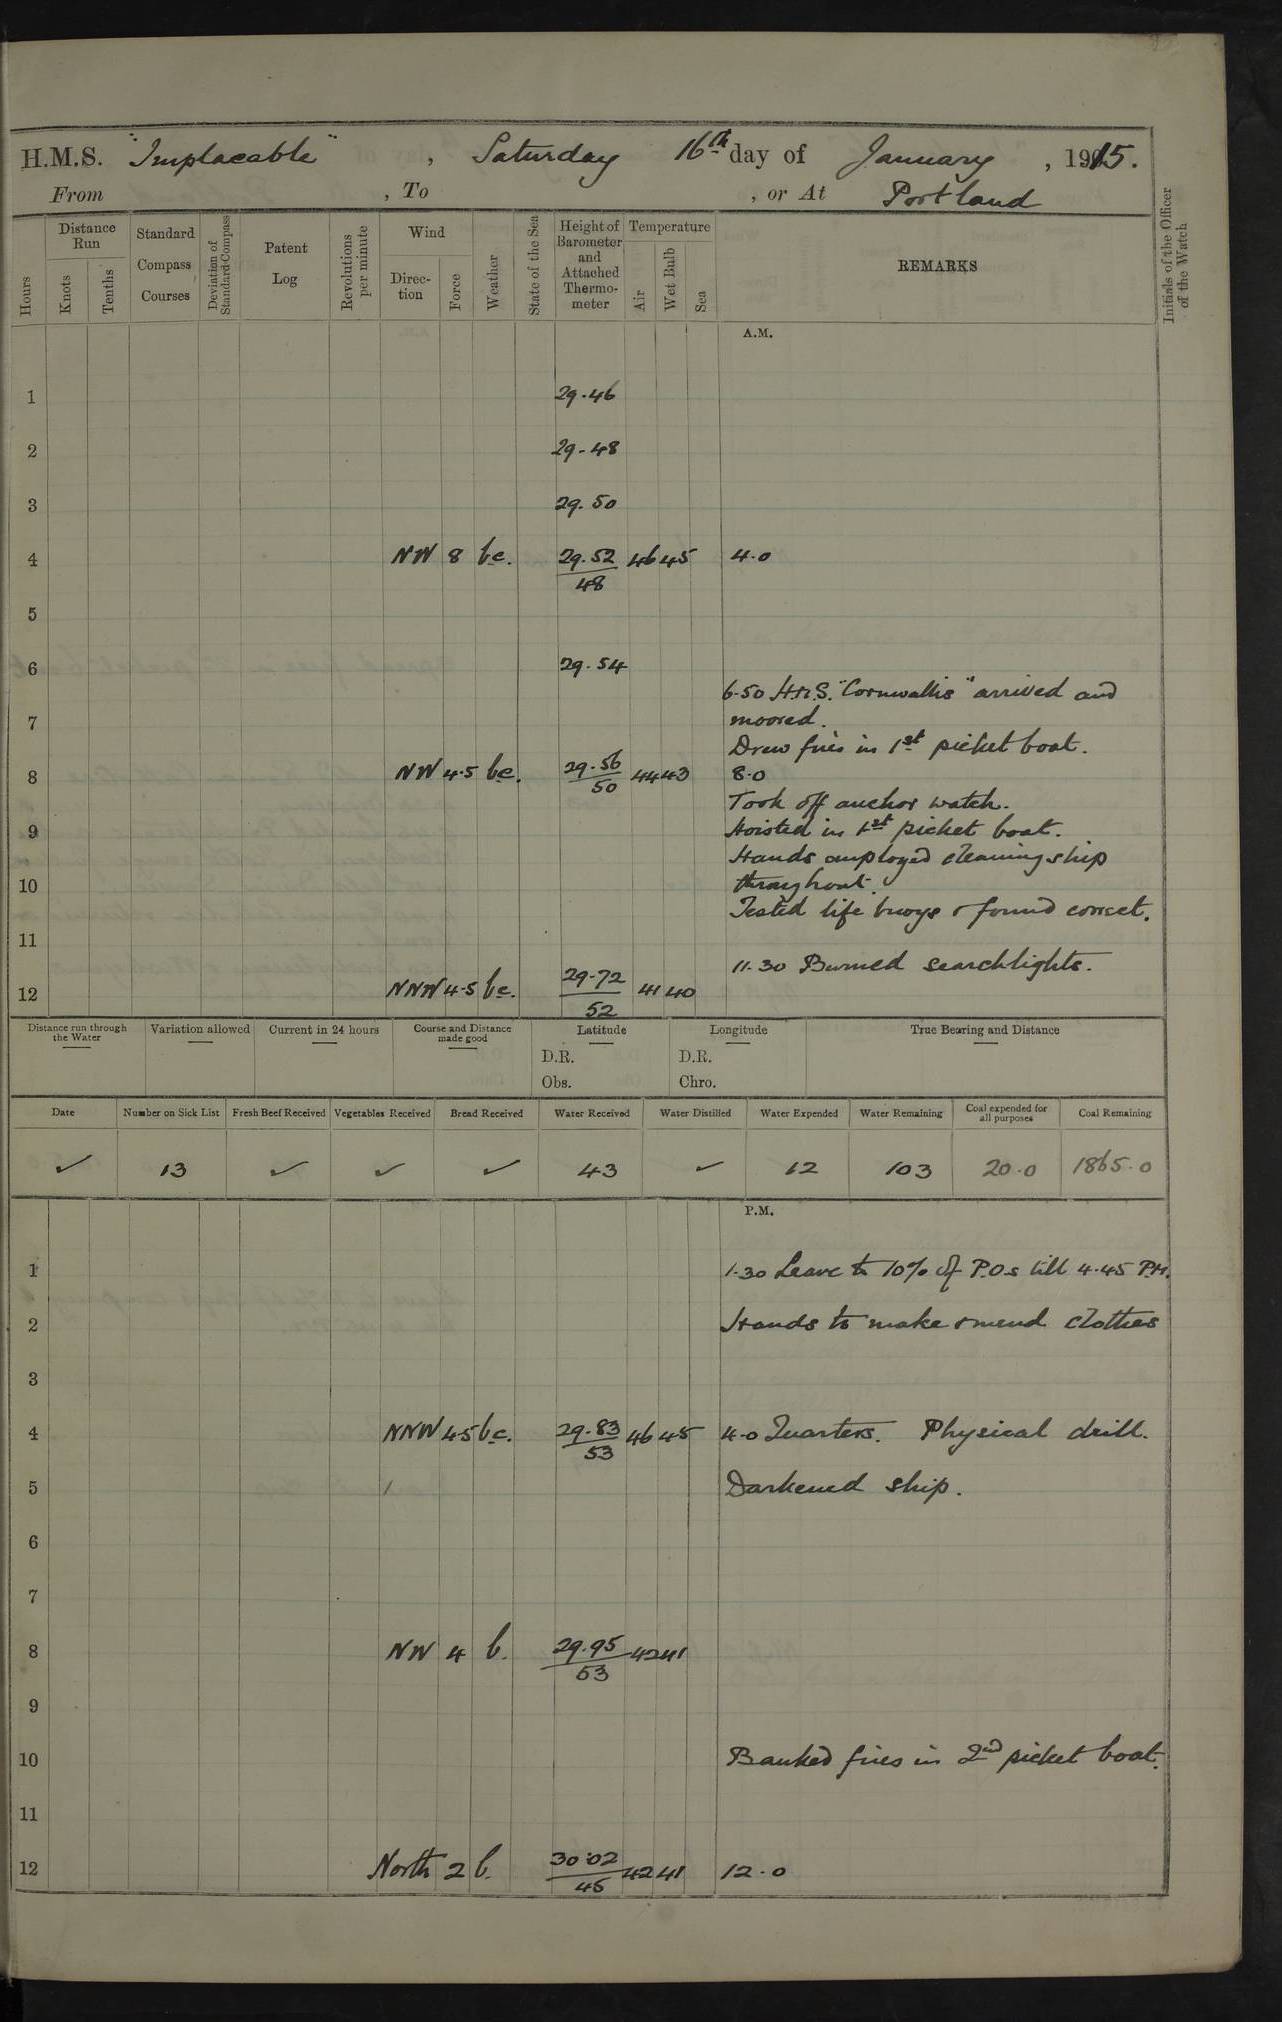 H.M.S. "Implacable", Saturday 16th day of January, 1915.
From , To , or At Portland
Hours
Distance Run
Knots
Tenths
Standard Compass Courses
Deviation of Standard Compass
Patent Log
Revolutions per minute
Wind
Direction
Force
Weather
State of the Sea
Height of Barometer and Attached Thermometer
Temperature
Air
Wet Bulb
Sea
REMARKS
Initials of the Officer of the Watch
A.M.
1 29.46
2 29.48
3 29.50
4 NW 8 bc. 29.52/48 46 45 4.0
5
6 29.54
6.50 H.M.S. "Cornwallis" arrived and
7 moored.
Drew fires in 1st picket boat.
8 NW 4.5 bc. 29.56/50 44 43 8.0
Took off anchor watch.
9 Hoisted in 1st picket boat.
Hands employed cleaning ship
10 throughout.
Tested life buoys & found correct.
11
11.30 Burned searchlights.
12 NNW 4.5 bc. 29.72/52 41 40
Distance run through the Water
Variation allowed
Current in 24 hours
Course and Distance made good
Latitude
D.R.
Obs.
Longitude
D.R.
Chro.
True Bearing and Distance
Date Number on Sick List Fresh Beef Received Vegetables Received Bread Received Water Received Water Distilled Water Expended Water Remaining Coal expended for all purposes Coal Remaining
✓ 13 ✓ ✓ ✓ 43 ✓ 12 103 20.0 1865.0
P.M.
1 1.30 Leave to 10% of P.O.s till 4.45 P.M.
2 Hands to make & mend clothes
3
4 NNW 4.5 bc. 29.83/53 46 45 4.0 Quarters. Physical drill.
5 Darkened ship.
6
7
8 NW 4 b. 29.95/53 42 41
9
10 Banked fires in 2nd picket boat.
11
12 North 2 b. 30.02/46 42 41 12.0